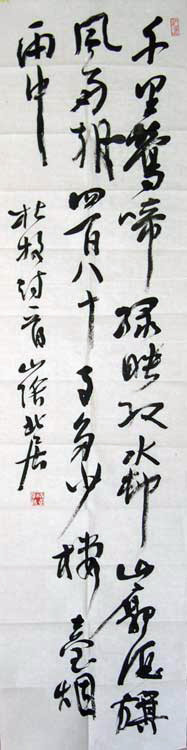 千里鶯啼绿映红水村山郭酒旗
風南朝四百八十寺多少樓臺烟
雨中
杜牧诗一首山陰北居